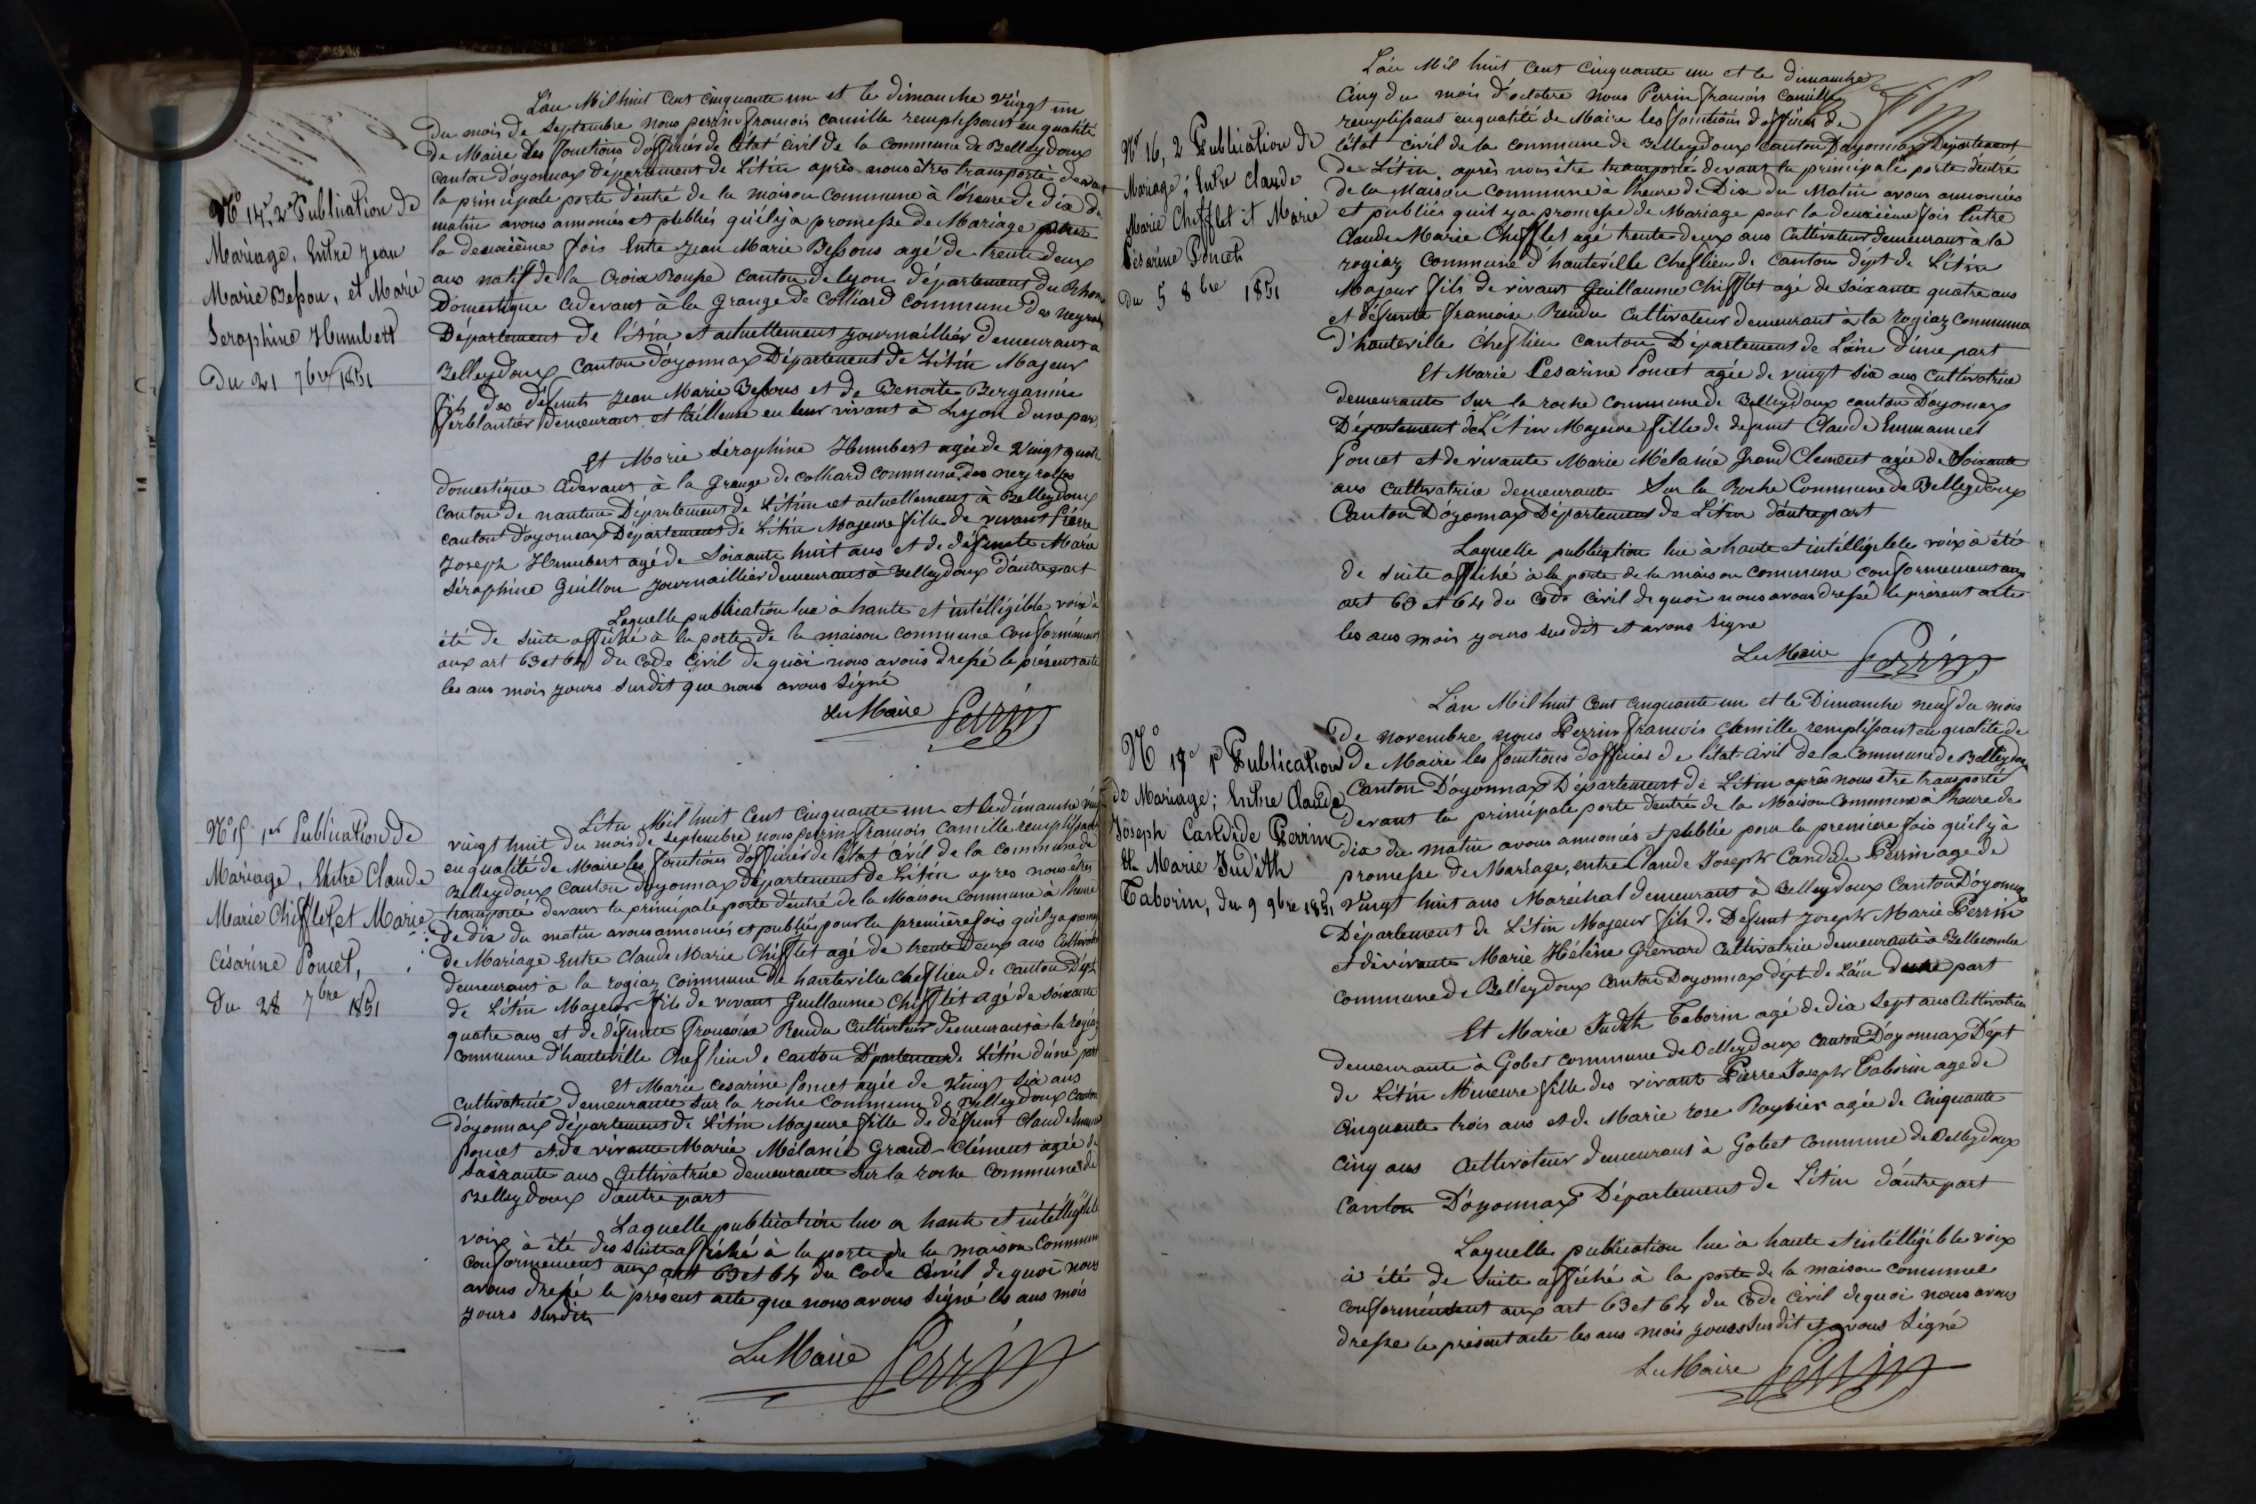 L'an Mil huit Cent cinquante un et le dimanche vingt un
Du mois de Septembre nous perrin francois camille remplissant en qualité
de Maire Les fonctions d'officier de l'état civil de la Commune de Belleydoux
canton d'oyonnax département de L'Ain après nous êtres transporté devant
la principale porte d'entré de la maison Commune à l'heure de dix du
matin avons annoncés et publiés qu'il y a promesse de Mariage pour
la deuxième fois Entre Jean Marie Bessons agé de trente deux
ans natif de la Croix Rousse canton de lyon département du Rhone
Domestique cidevant à la Grange de Colliard commune des neyrolles
Département de l'Ain et actuellement journaillier demeurant a
Belleydoux Canton d'oyonnax Département de L'Ain Majeur
fils des défunts Jean Marie Bessons et de Benoite Berganine
ferblantier demeurant et tailleuse en leur vivant à Lyon d'une part
Et Marie Séraphine Humbert agée de Vingt quatre
domestique cidevant à la Grange de colliard commune des neyrolles
canton de nantua Département de L'Ain et actuellement à Belleydoux
canton d'oyonnax Département de L'Ain Majeure fille de vivant Pierre
Joseph Humbert agé de Soixante huit ans et de défunte Marie
Séraphine Guillon journaillier demeurant à Belleydoux d'autre part
Laquelle publication lue à haute et intélligible voix à
été de suite affiché à la porte de la maison commune conformément
aux art 63 et 64 du Code Civil de quoi nous avons dressé le présent acte
les ans mois jours susdit que nous avons Signé
Le Maire Perrin
No 14, 2e Publication de
Mariage, Entre Jean
Marie Besson, et Marie
Seraphine Humbert
Du 21 7bre 1851
L'An Mil huit Cent cinquante un et le dimanche
vingt huit du mois de septembre nous perrin francois Camille remplissant
en qualité de Maire les fonctions d'officier de l'état civil de la Commune de
Belleydoux Canton d'oyonnax département de L'Ain après nous êtres
transporté devant la principale porte d'entré de la Maison Commune à l'heure
de dix du matin avons annoncés et publiés pour la première fois qu'il y a promesse
de Mariage Entre Claude Marie Chifflet agé de trente deux ans Cultivateur
demeurant à la rogiaz commune de hauteville chef lieu de canton Dépt
de L'Ain Majeur fils de vivant Guillaume Chifflet agé de soixante
quatre ans et de défunte Françoise Rendu Cultivateur demeurant à la Rogiaz
commune d'hauteville Chef lieu de canton Département de L'Ain d'une part
Et Marie cesarine Poncet agée de vingt Six ans
cultivatrice demeurante sur la roche commune de Belleydoux Canton
d'oyonnax département de L'Ain Majeure fille de défunt Claude Emmanuel
Poncet et de vivante Marie Mélanie Grand-Clément agée de
soixante ans Cultivatrice demeurante sur la roche commune de
Belleydoux d'autre part
Laquelle publication lue a haute et intélligible
voix à été des suite affiché à la porte de la maison Commune
conformement aux art 63 et 64 du Code Civil de quoi nous
avons dressé le présent acte que nous avons Signé les ans mois
jours susdits
Le Maire Perrin
No 15 1er Publication de
Mariage, Entre Claude
Marie Chifflet, et Marie
Césarine Poncet,
Du 28 7bre 1851
L'an Mil huit Cent Cinquante un et le dimanche
Cinq du mois d'octobre nous Perrin francois Camille
remplissant en qualité de Maire les fonctions d'officier de
l'état civil de la commune de Belleydoux canton Doyonnax Département
de L'Ain, après nous être transporté devant la principale porte d'entré
de la Maison Commune à l'heure de Dix du Matin avons annoncées
et publiés qu'il y a promesse de Mariage pour la deuxième fois Entre
Claude Marie Chifflet agé trente deux ans Cultivateur demeurant à la
rogiaz Commune d'hauteville Chef lieu de Canton dépt de L'Ain
Majeur fils de vivant Guillaume Chifflet agé de Soixante quatre ans
et défunte Françoise Rendu Cultivateur demeurant à la Rogiaz Commune
d'hauteville Chef lieu Canton Département de Lain d'une part
Et Marie Cesarine Poncet agée de vingt Six ans Cultivatrice
demeurante Sur la roche Commune de Belleydoux canton Doyonnax
Département de L'Ain Majeure fille de defunt Claude Emmanuel
Poncet et de vivante Marie Mélanie Grand Clement agée de Soixante
ans cultivatrice demeurante Sur la Roche Commune de Belleydoux
Canton Doyonnax Département de L'Ain d'autre part
Laquelle publication lue à haute et intélligible voix à été
de suite affiché à la porte de la maison commune conformement aux
art 63 et 64 du Code Civil de quoi nous avons dressé le présent acte
les ans mois jours susdit et avons Signé
Le Maire Perrin
No 16, 2 Publication de
Mariage, Entre Claude
Marie Chifflet et Marie
Césarine Poncet
Du 5 8bre 1851
L'an Mil huit Cent Cinquante un et le Dimanche neuf du mois
de novembre nous Perrin francois Camille remplissant en qualité de
de Maire les fonctions d'officier de l'état Civil de la Commune de Belleydoux
Canton D'oyonnax Département de L'Ain après nous être transporté
devant la principale porte d'entré de la Maison Commune à l'heure de
dix du matin avons annoncés et publié pour la première fois qu'il y à
promesse de Mariage, entre Claude Joseph Candide Perrin age de
Vingt huit ans Maréchal demeurant à Belleydoux Canton D'oyonnax
Département de L'Ain Majeur fils de Défunt Joseph Marie Perrin
et de vivante Marie Hélène Grenard Cultivatrice demeurante à Bellecombe
commune de Belleydoux canton Doyonnax dépt de Lain d'une part
Et Marie Judith Taborin agé de dix Sept ans Cultivatrice
demeurante à Gobet commune de Belleydoux canton D'oyonnax Dépt
de L'Ain Mineure fille des vivant Pierre Joseph Taborin age de
Cinquante trois ans et de Marie rose Roybier agée de Cinquante
Cinq ans Cultivateur demeurant à Gobet commune de Belleydoux
Canton D'oyonnax Département de L'Ain d'autre part
Laquelle publication lue à haute et intélligible voix
à été de Suite affiché à la porte de la maison commune
conformément aux art 63 et 64 du Code Civil de quoi nous avons
dresse le présent acte les ans mois jours susdit et avons Signé
Le Maire Perrin
No 17 1er Publication
de Mariage; Entre Claude
Joseph Candide Perrin
et Marie Judith
Taborin, du 9 9bre 1851